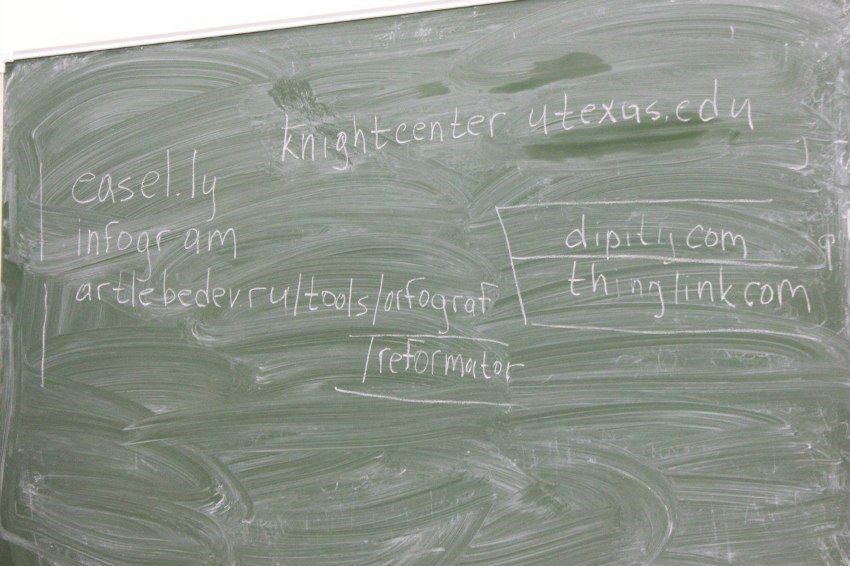 knightcenter utexas.edu
easel.ly
infogram
dipity.com
artlebedev.ru/tools/orfograf
thinglink.com
/reformator